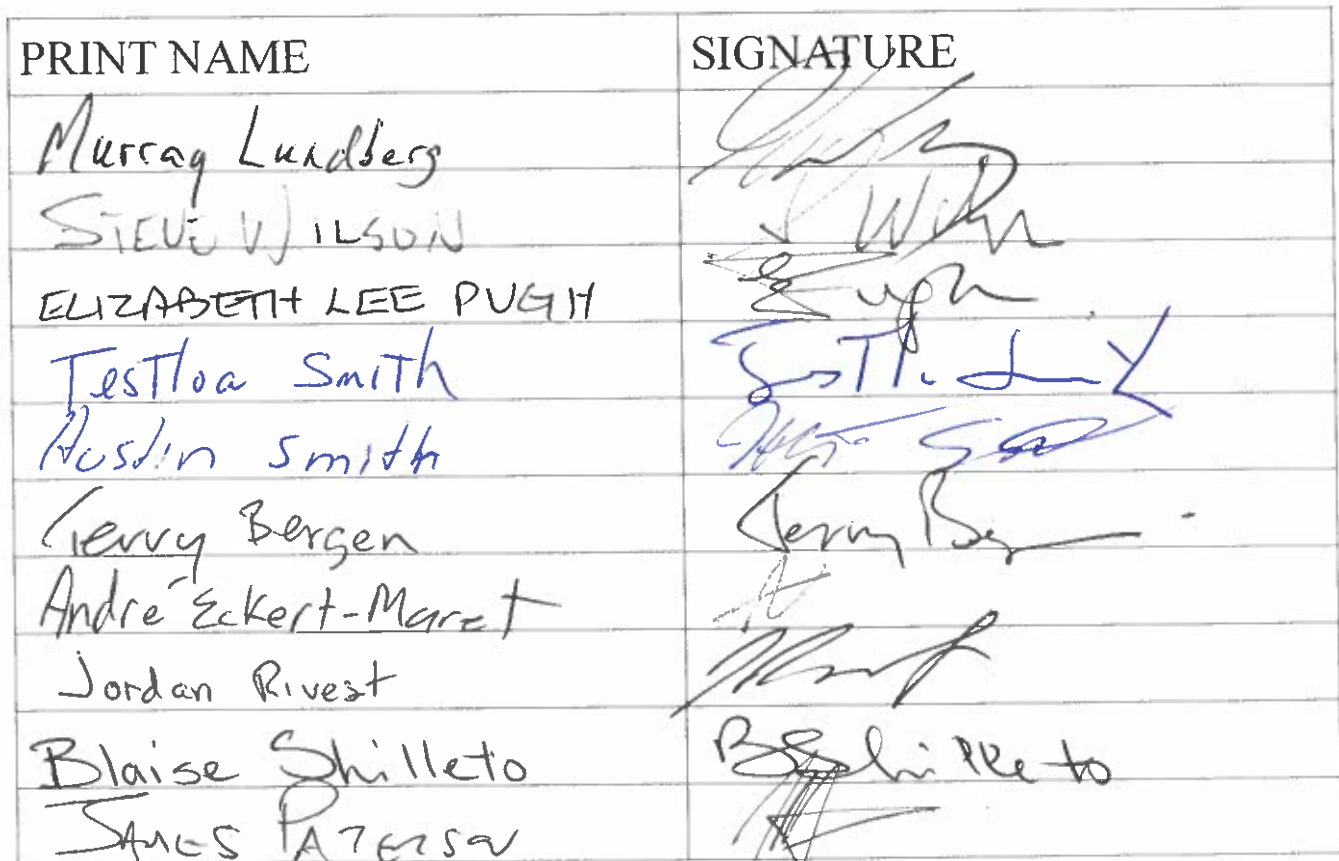 PRINT NAME SIGNATURE
Murray Lundberg
STEVE WILSON S Wilson
ELIZABETH LEE PUGH E Pugh
TestToa Smith
Austin Smith
Terry Bergen Terry Bergen
André Eckert-Maret
Jordan Rivest
Blaise Shilleto B Shilleto
JAMES PATERSON